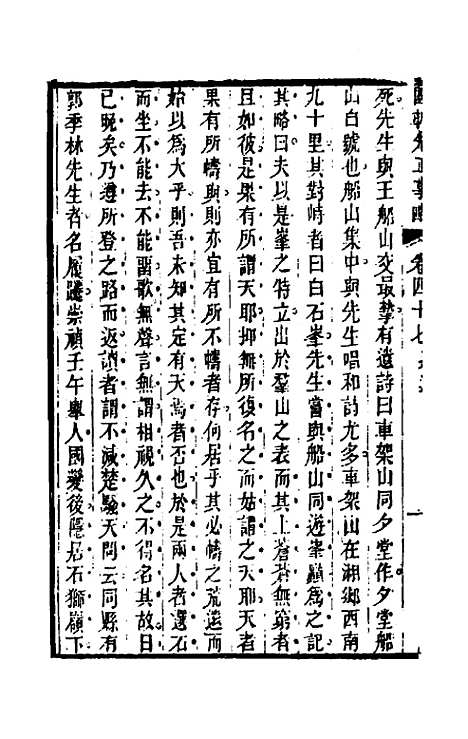 國朝先正事略　卷四十七
死先生與王船山交最摯有遺詩曰車架山同夕堂作夕堂船
山自號也船山集中與先生唱和詩尤多車架山在湘鄉西南
九十里其對峙者曰白石峯先生嘗與船山同遊峯巔爲之記
其略曰夫以是峯之特立出於羣山之表而其上蒼蒼無窮者
且如彼是果有所謂天耶抑無所復名之而姑謂之天耶天者
果有所幬與則亦宜有所不幬者存何居乎其必幬之荒遠而
始以爲大乎則吾未知其定有天焉者否也於是兩人者選石
而坐不能去不能謳歌無聲言無謂相視久之不得名其故日
已晚矣乃遵所登之路而返讀者謂不減楚騷天問云同縣有
郭季林先生者名履躚崇禎壬午舉人國變後隱居石獅嶺下